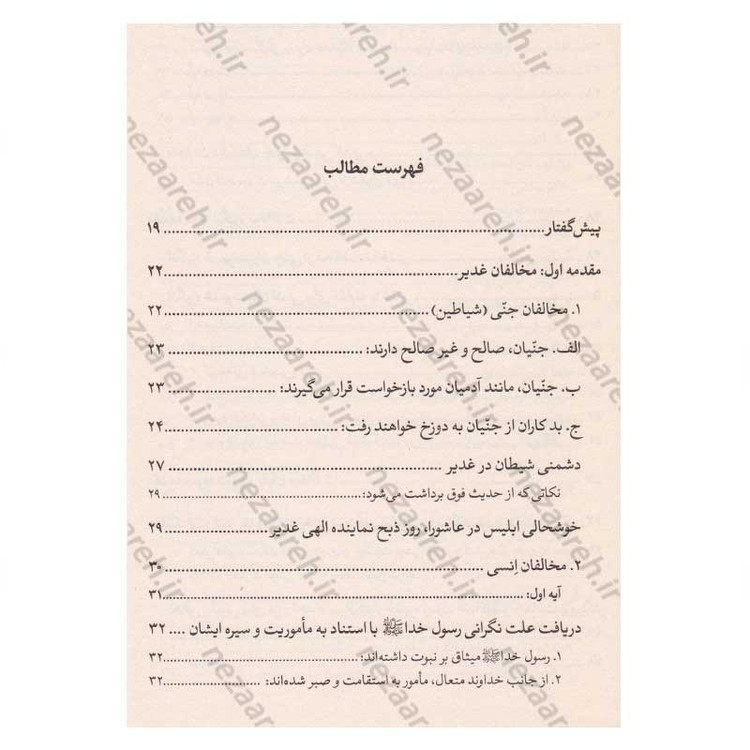 فهرست مطالب
پیش‌گفتار ........ ۱۹
مقدمه اول: مخالفان غدیر ........ ۲۲
۱. مخالفان جنّی (شیاطین) ........ ۲۲
الف. جنّیان، صالح و غیر صالح دارند: ........ ۲۳
ب. جنّیان، مانند آدمیان مورد بازخواست قرار می‌گیرند: ........ ۲۳
ج. بد کاران از جنّیان به دوزخ خواهند رفت: ........ ۲۴
دشمنی شیطان در غدیر ........ ۲۷
نکاتی که از حدیث فوق برداشت می‌شود: ........ ۲۹
خوشحالی ابلیس در عاشورا، روز ذبح نماینده الهی غدیر ........ ۲۹
۲. مخالفان اِنسی ........ ۳۰
آیه اول: ........ ۳۱
دریافت علت نگرانی رسول خداﷺ با استناد به مأموریت و سیره ایشان .... ۳۲
۱. رسول خداﷺ میثاق بر نبوت داشته‌اند: ........ ۳۲
۲. از جانب خداوند متعال، مأمور به استقامت و صبر شده‌اند: ........ ۳۲
nezaareh.ir